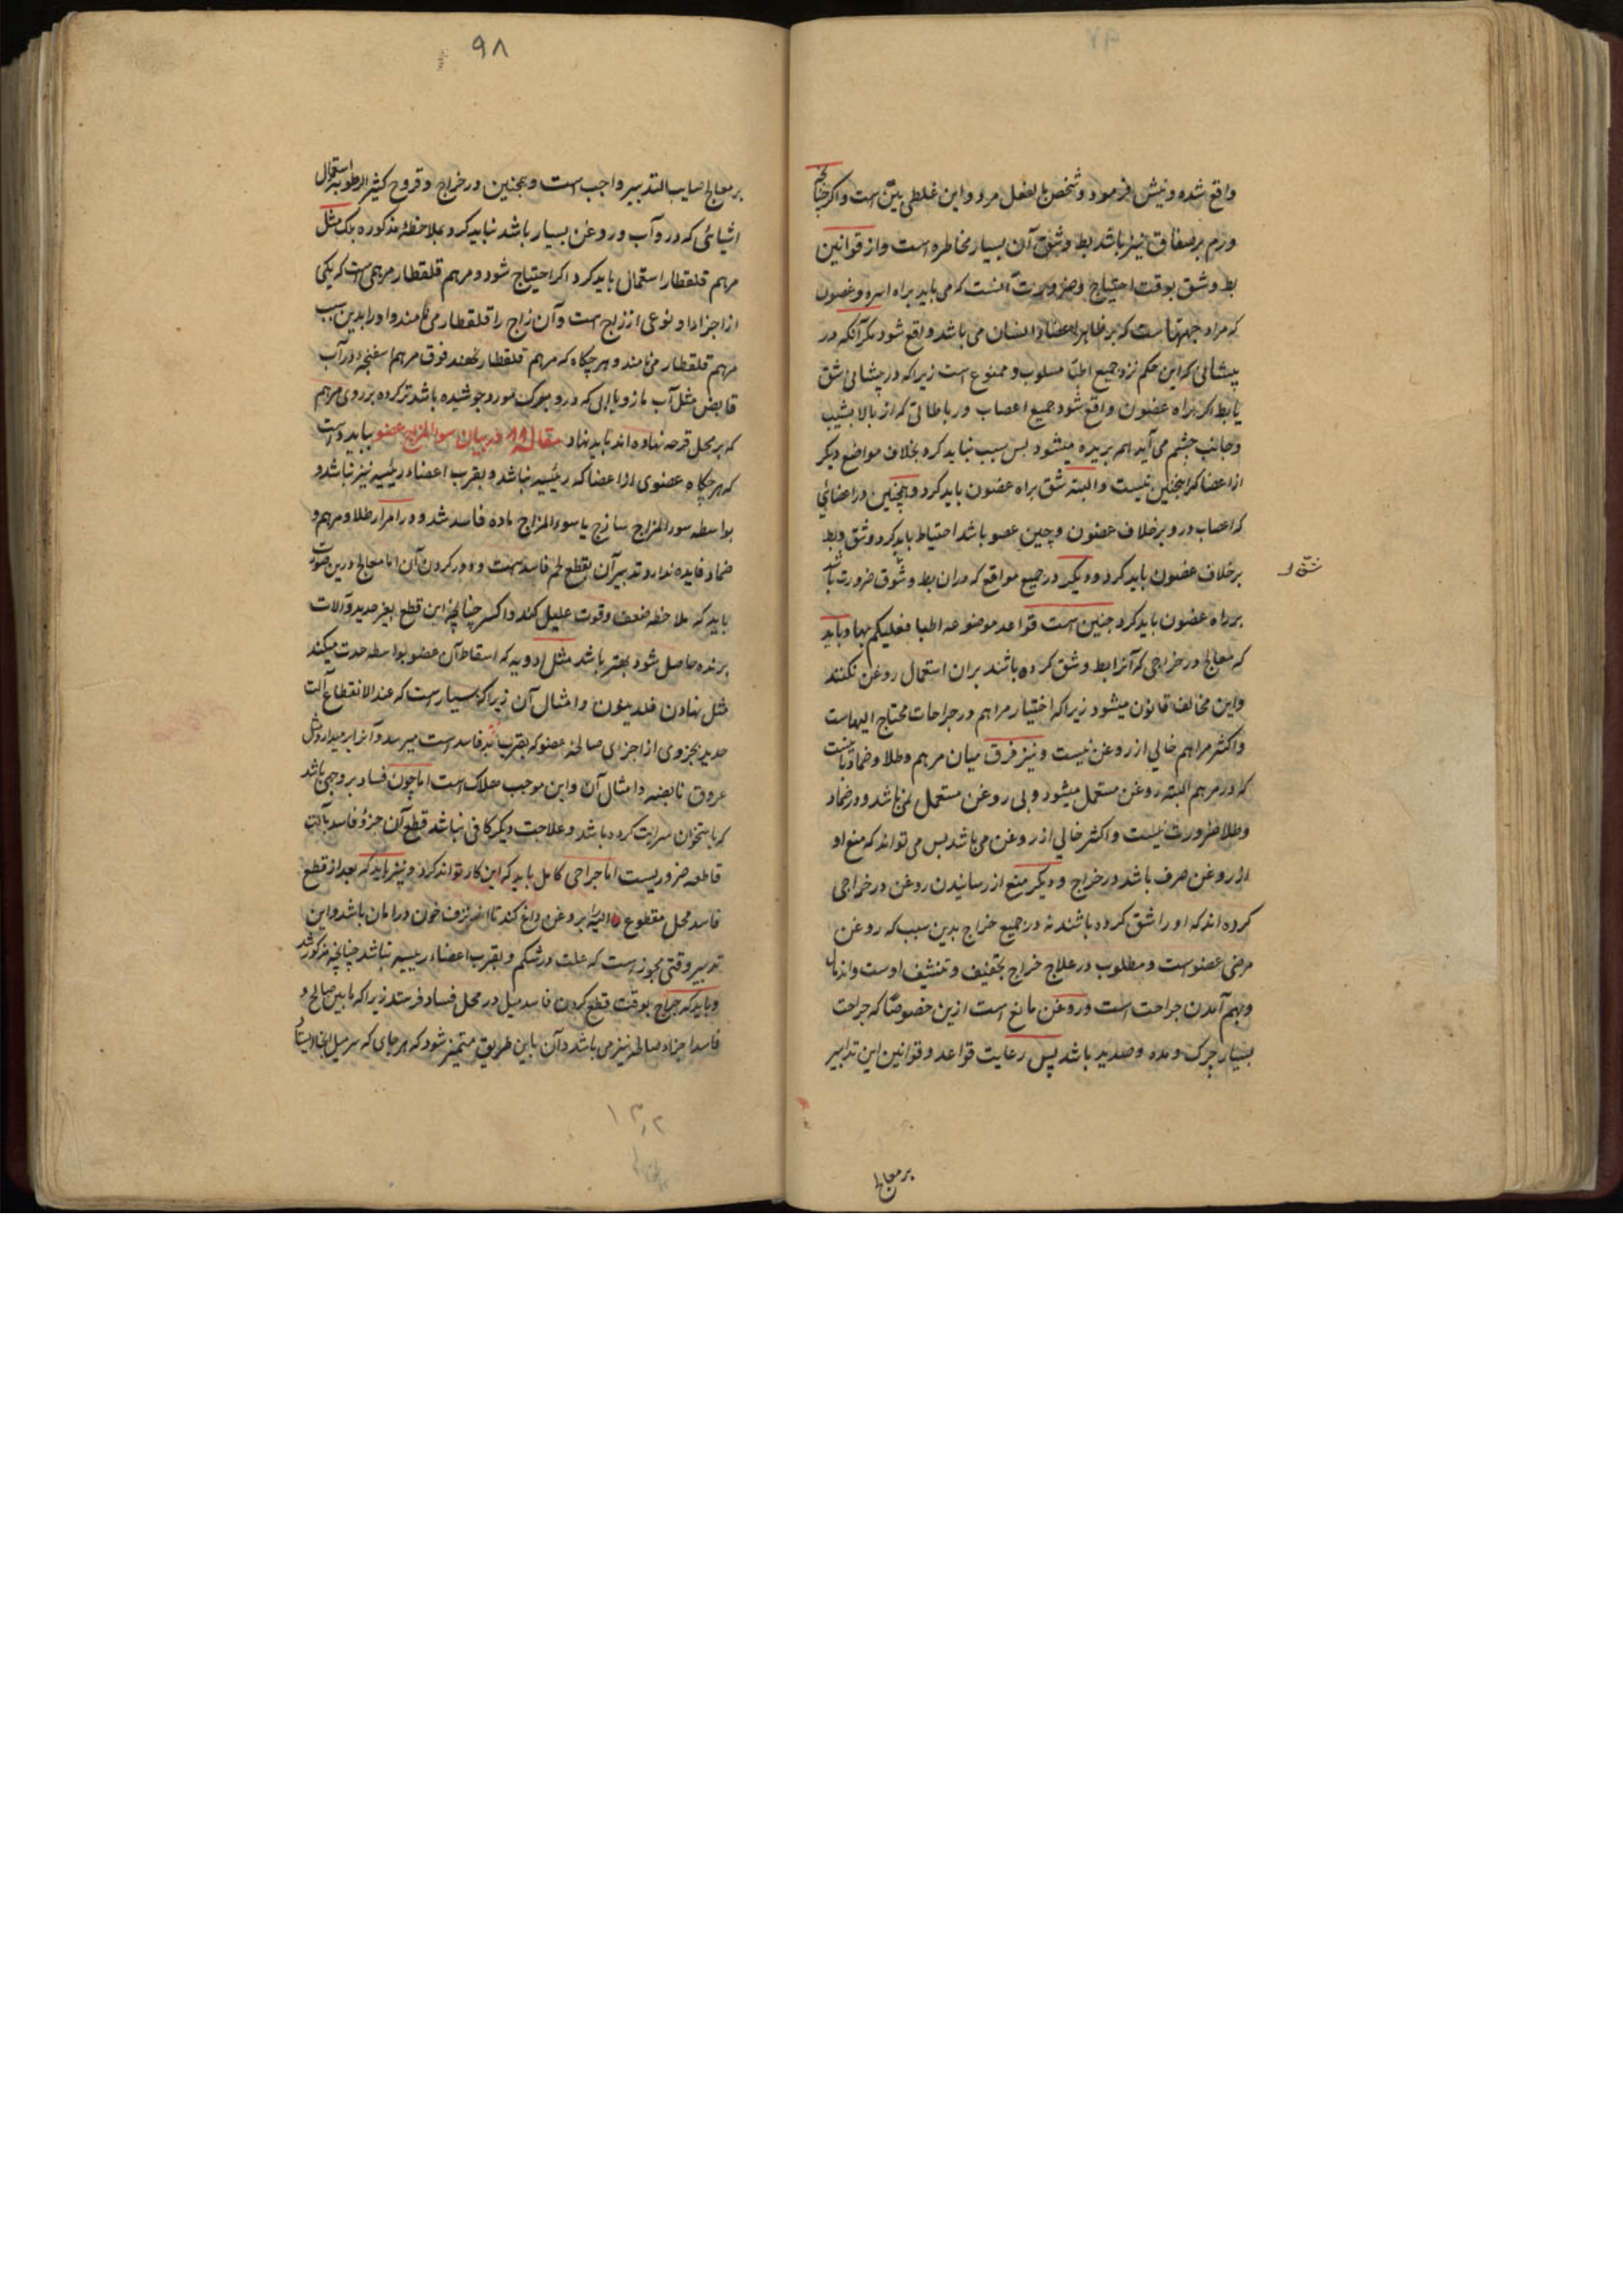 واقع شده و نیش فرمود و شخص بالفعل مرد و این غلطی بین است و اگر چنانچه
ورم بر صفاق نیز باشد بط و شق آن بسیار مخاطره است و از قوانین
بط و شق بوقت احتیاج و ضرورت آنست که می باید براه اسره و غضون
که مراد جهتهاست که بر ظاهر اعضاء انسان می باشد واقع شود مگر آنکه در
پیشانی که این حکم نزد جمیع اطبا مسلوب و ممنوع است زیرا که در پیشانی اشق
یا بط اگر براه غضون واقع شود جمیع اعصاب و رباطاتی که از بالا بشیب
و جانب چشم می آید هم بریده میشود بس سبب نباید کرد بخلاف مواضع دیگر
از اعضا که اینچنین نیست و البته شق براه غضون باید کرد و همچنین در اعضائی
که اعصاب در و بر خلاف غضون و چین عضو باشد احتیاط باید کرد و شق و بط
بر خلاف غضون باید کرد و دیگر در جمیع مواقع که دران بط و شوق ضرورت باشد
شق و
بر راه غضون باید کرد چنین است قواعد موضوعه اطبا فعلیکم بها و باید
که معالج در خراجی که آنرا بط و شق کرده باشند بران استعمال روغن نکنند
و این مخالف قانون میشود زیرا که اختیار مراهم در جراحات محتاج الیهاست
و اکثر مراهم خالی از روغن نیست و نیز فرق میان مرهم و طلا و ضماد
که در مرهم البته روغن مستعمل میشود و بی روغن مستعمل نمی باشد و در ضماد
و طلا ضرورت نیست و اکثر خالی از روغن می باشد بس می تواند که منع او
از روغن صرف باشد در خراج و دیگر منع از رسانیدن روغن در خراجی
کرده اند که او را شق کرده باشند نه در جمیع خراج بدین سبب که روغن
مرخی عضو است و مطلوب در علاج خراج تجفیف و تنشیف اوست و اندمال
و بهم آمدن جراحت است و روغن مانع است ازین خصوصا که جراحت
بسیار چرک و مده و صدید باشد پس رعایت قواعد و قوانین این تدابیر
بر معالج
۹۸
بر معالج صایب التدبیر واجب است و همچنین در خراج و قروح کثیر الرطوبه استعمال
اشیائی که در و آب و روغن بسیار باشد نباید کرد بملاحظهٔ مذکوره بلک مثل
مرهم قلقطار استعمال باید کرد اگر احتیاج شود و مرهم قلقطار مرهمی است که یکی
از اجزاء او نوعی از زاج است و آن زاج را قلقطار می نامند و او را بدین سبب
مرهم قلقطار می نامند و هر چکاه که مرهم قلقطار نهند فوق مرهم اسفنجه در آب
قابض مثل آب مازو یا آبی که در و برک مورد جوشیده باشد تر کرده بر روی مرهم
که بر محل قرحه نهاده اند باید نهاد مقاله ۱۱ در بیان سوء المزاج عضو بباید دانست
که هر چکاه عضوی از اعضا که رئیسه نباشد و بقرب اعضاء رئیسه نیز نباشد و
بواسطه سوء المزاج ساذج یا سوء المزاج ماده فاسد شد و در امرار طلا و مرهم و
ضماد فایده ندارد تدبیر آن بقطع لحم فاسد است و دور کردن آن اما معالج درین صورت
باید که ملاحظه ضعف و قوت علیل کند و اگر چنانچه این قطع بغیر حدید و آلات
برنده حاصل شود بهتر باشد مثل ادویه که اسقاط آن عضو بواسطه حدت میکند
مثل نهادن فلدفیون و امثال آن زیرا که بسیار است که عند الانقطاع آلت
حدید بجزوی از اجزای صالحه عضو که بقرب فاسد است میرسد و آنرا
عروق نابضه و امثال آن و این موجب هلاک است اما چون فساد بر وجهی باشد
که باستخوان سرایت کرده باشد و علاجت دیگر کافی نباشد قطع آن جزؤ فاسد بآلت
قاطعه ضروریست اما جراحی کامل باید که این کار تواند کرد و نیز باید که بعد از قطع
فاسد محل مقطوع البته بروغن داغ کند تا از نزف خون در امان باشد و این
تدبیر وقتی مجوز است که علت در شکم و بقرب اعضاء رییسه نباشد چنانچه مذکور شد
و باید که جراح بوقت قطع کردن فاسد میل در محل فساد فرستد زیرا که ما بین صالح و
فاسد اجزاء صالحه نیز می باشد و آن باین طریق متمیز شود که هر جای که سر میل